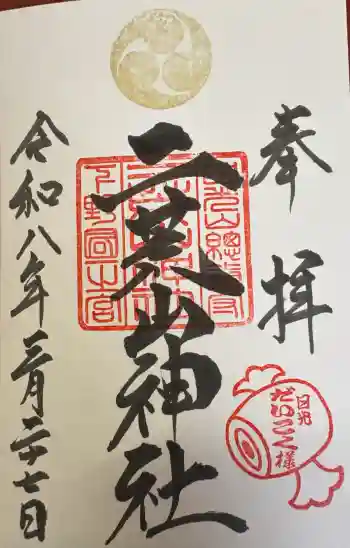 奉拝
二荒山神社
日光
だいこく様
令和八年三月二十七日